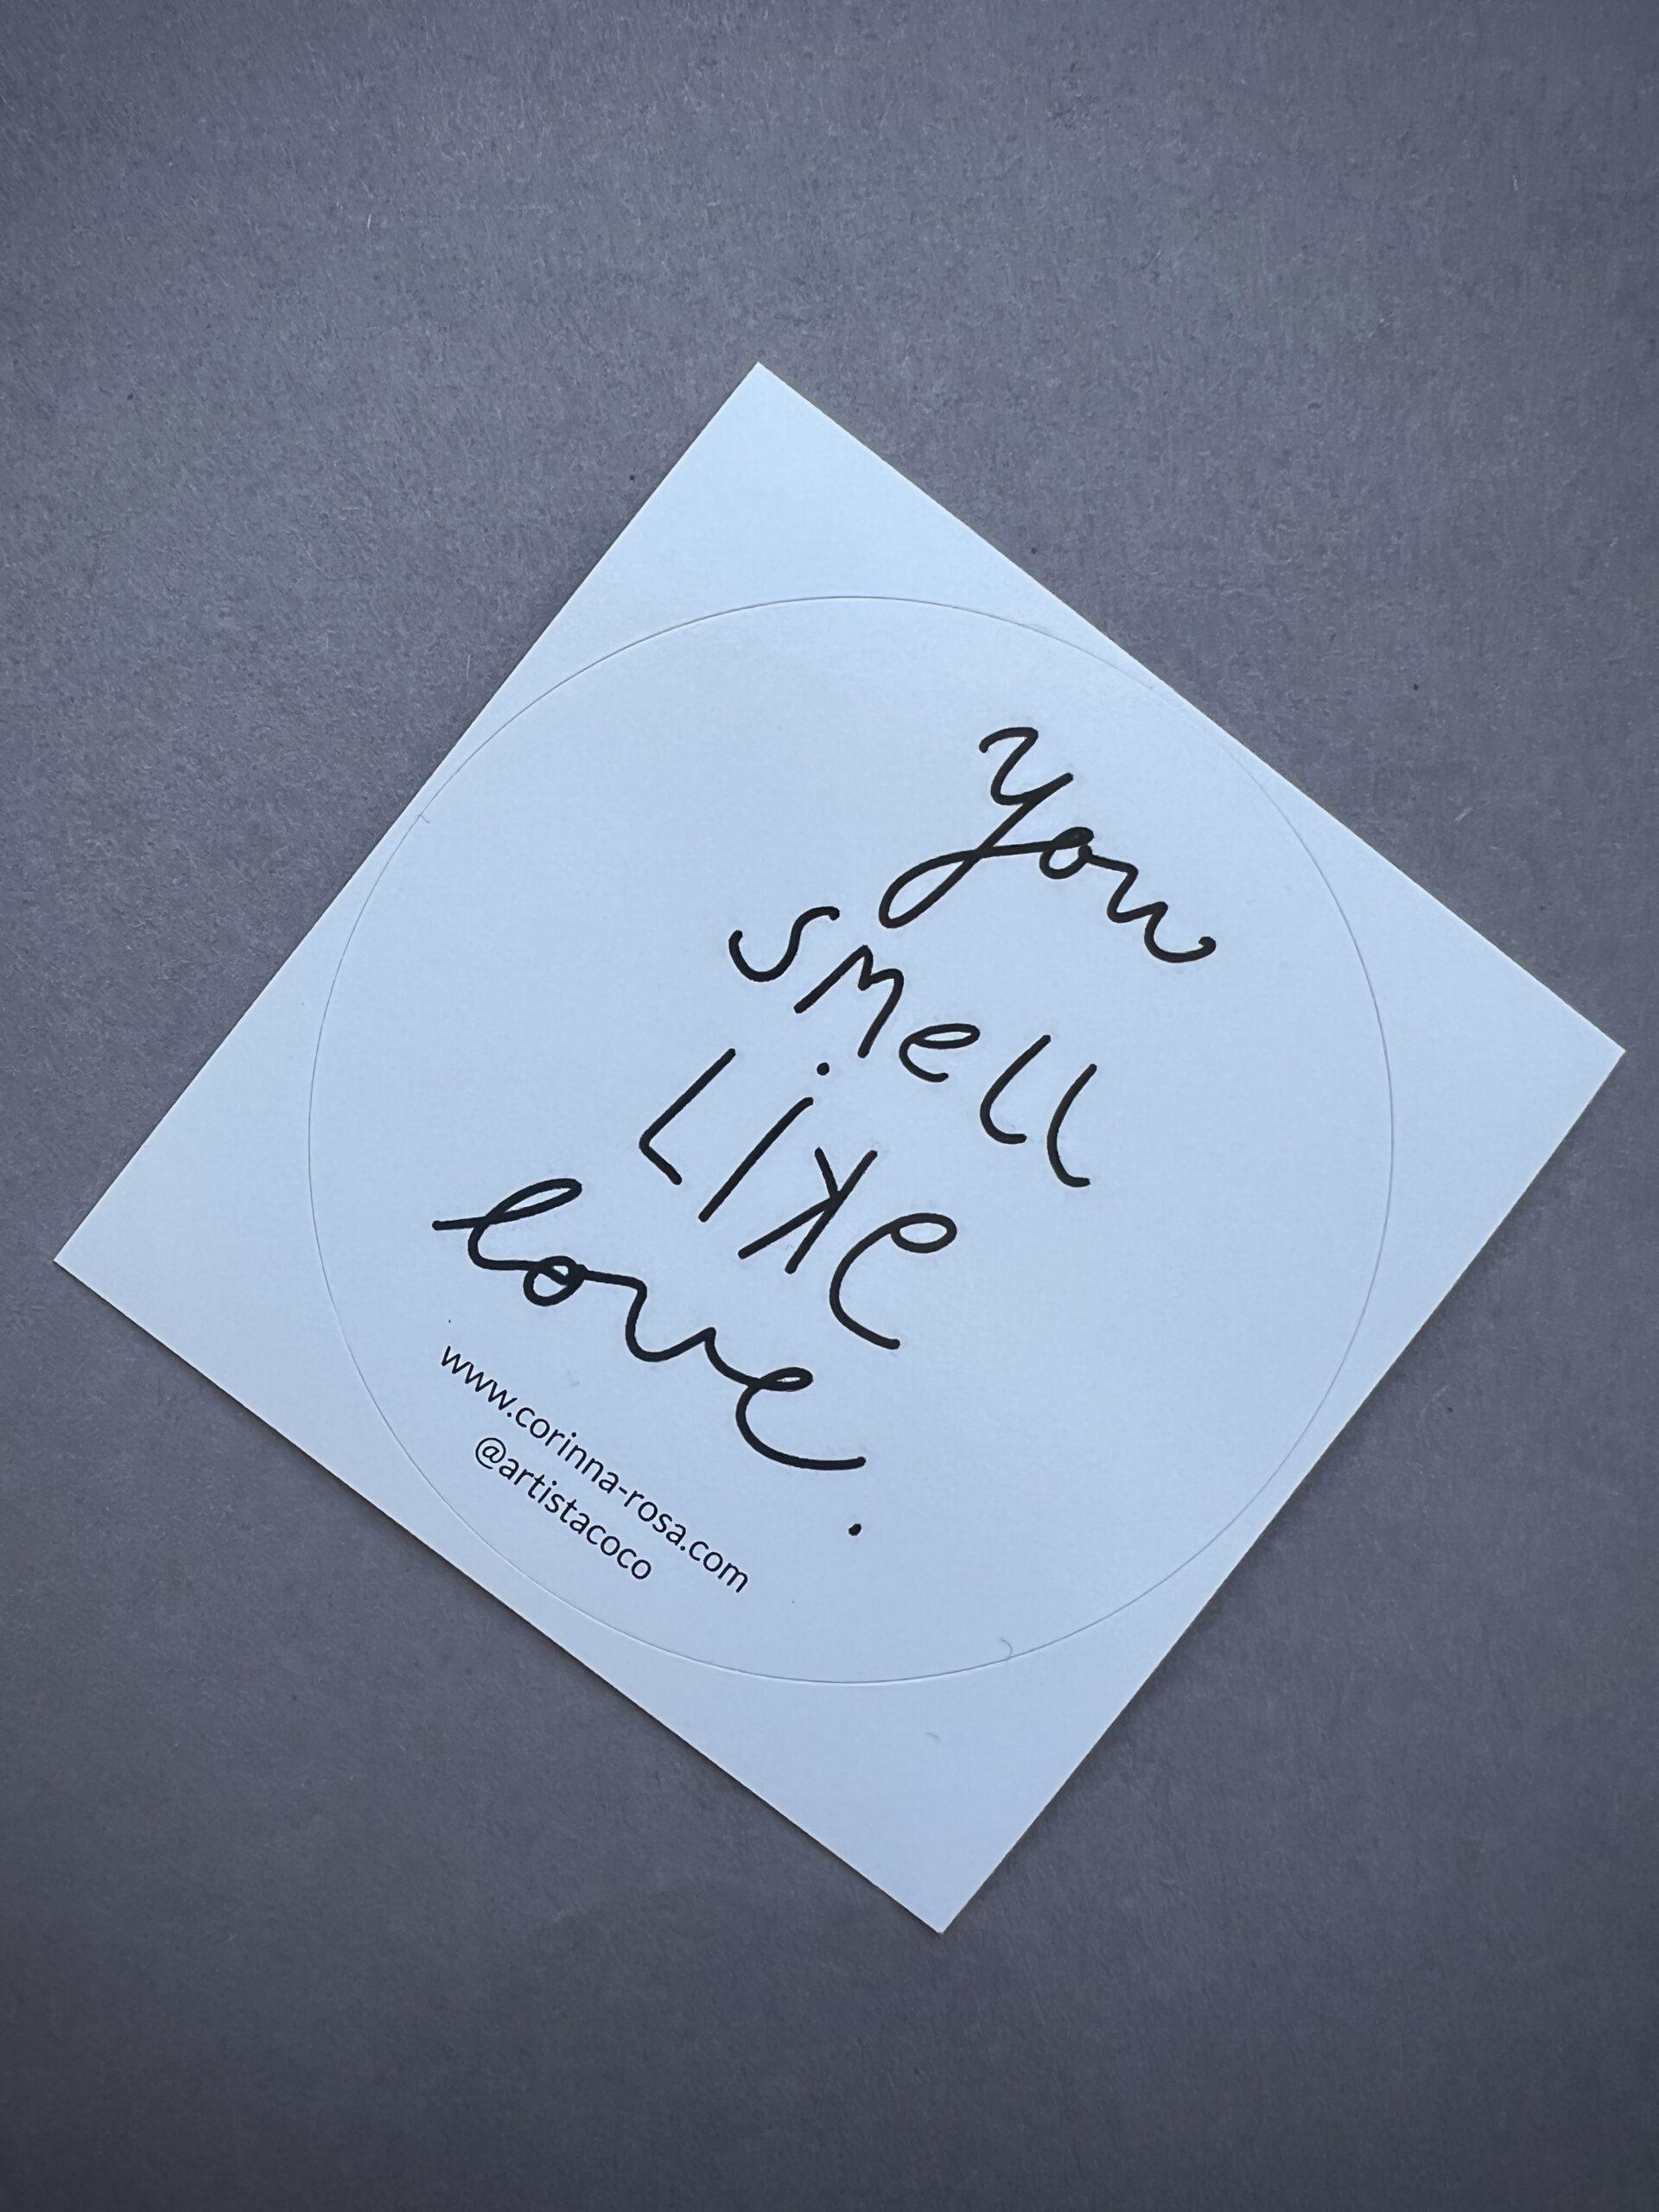 you
smell
Like
love.
www.corinna-rosa.com
@artistacoco